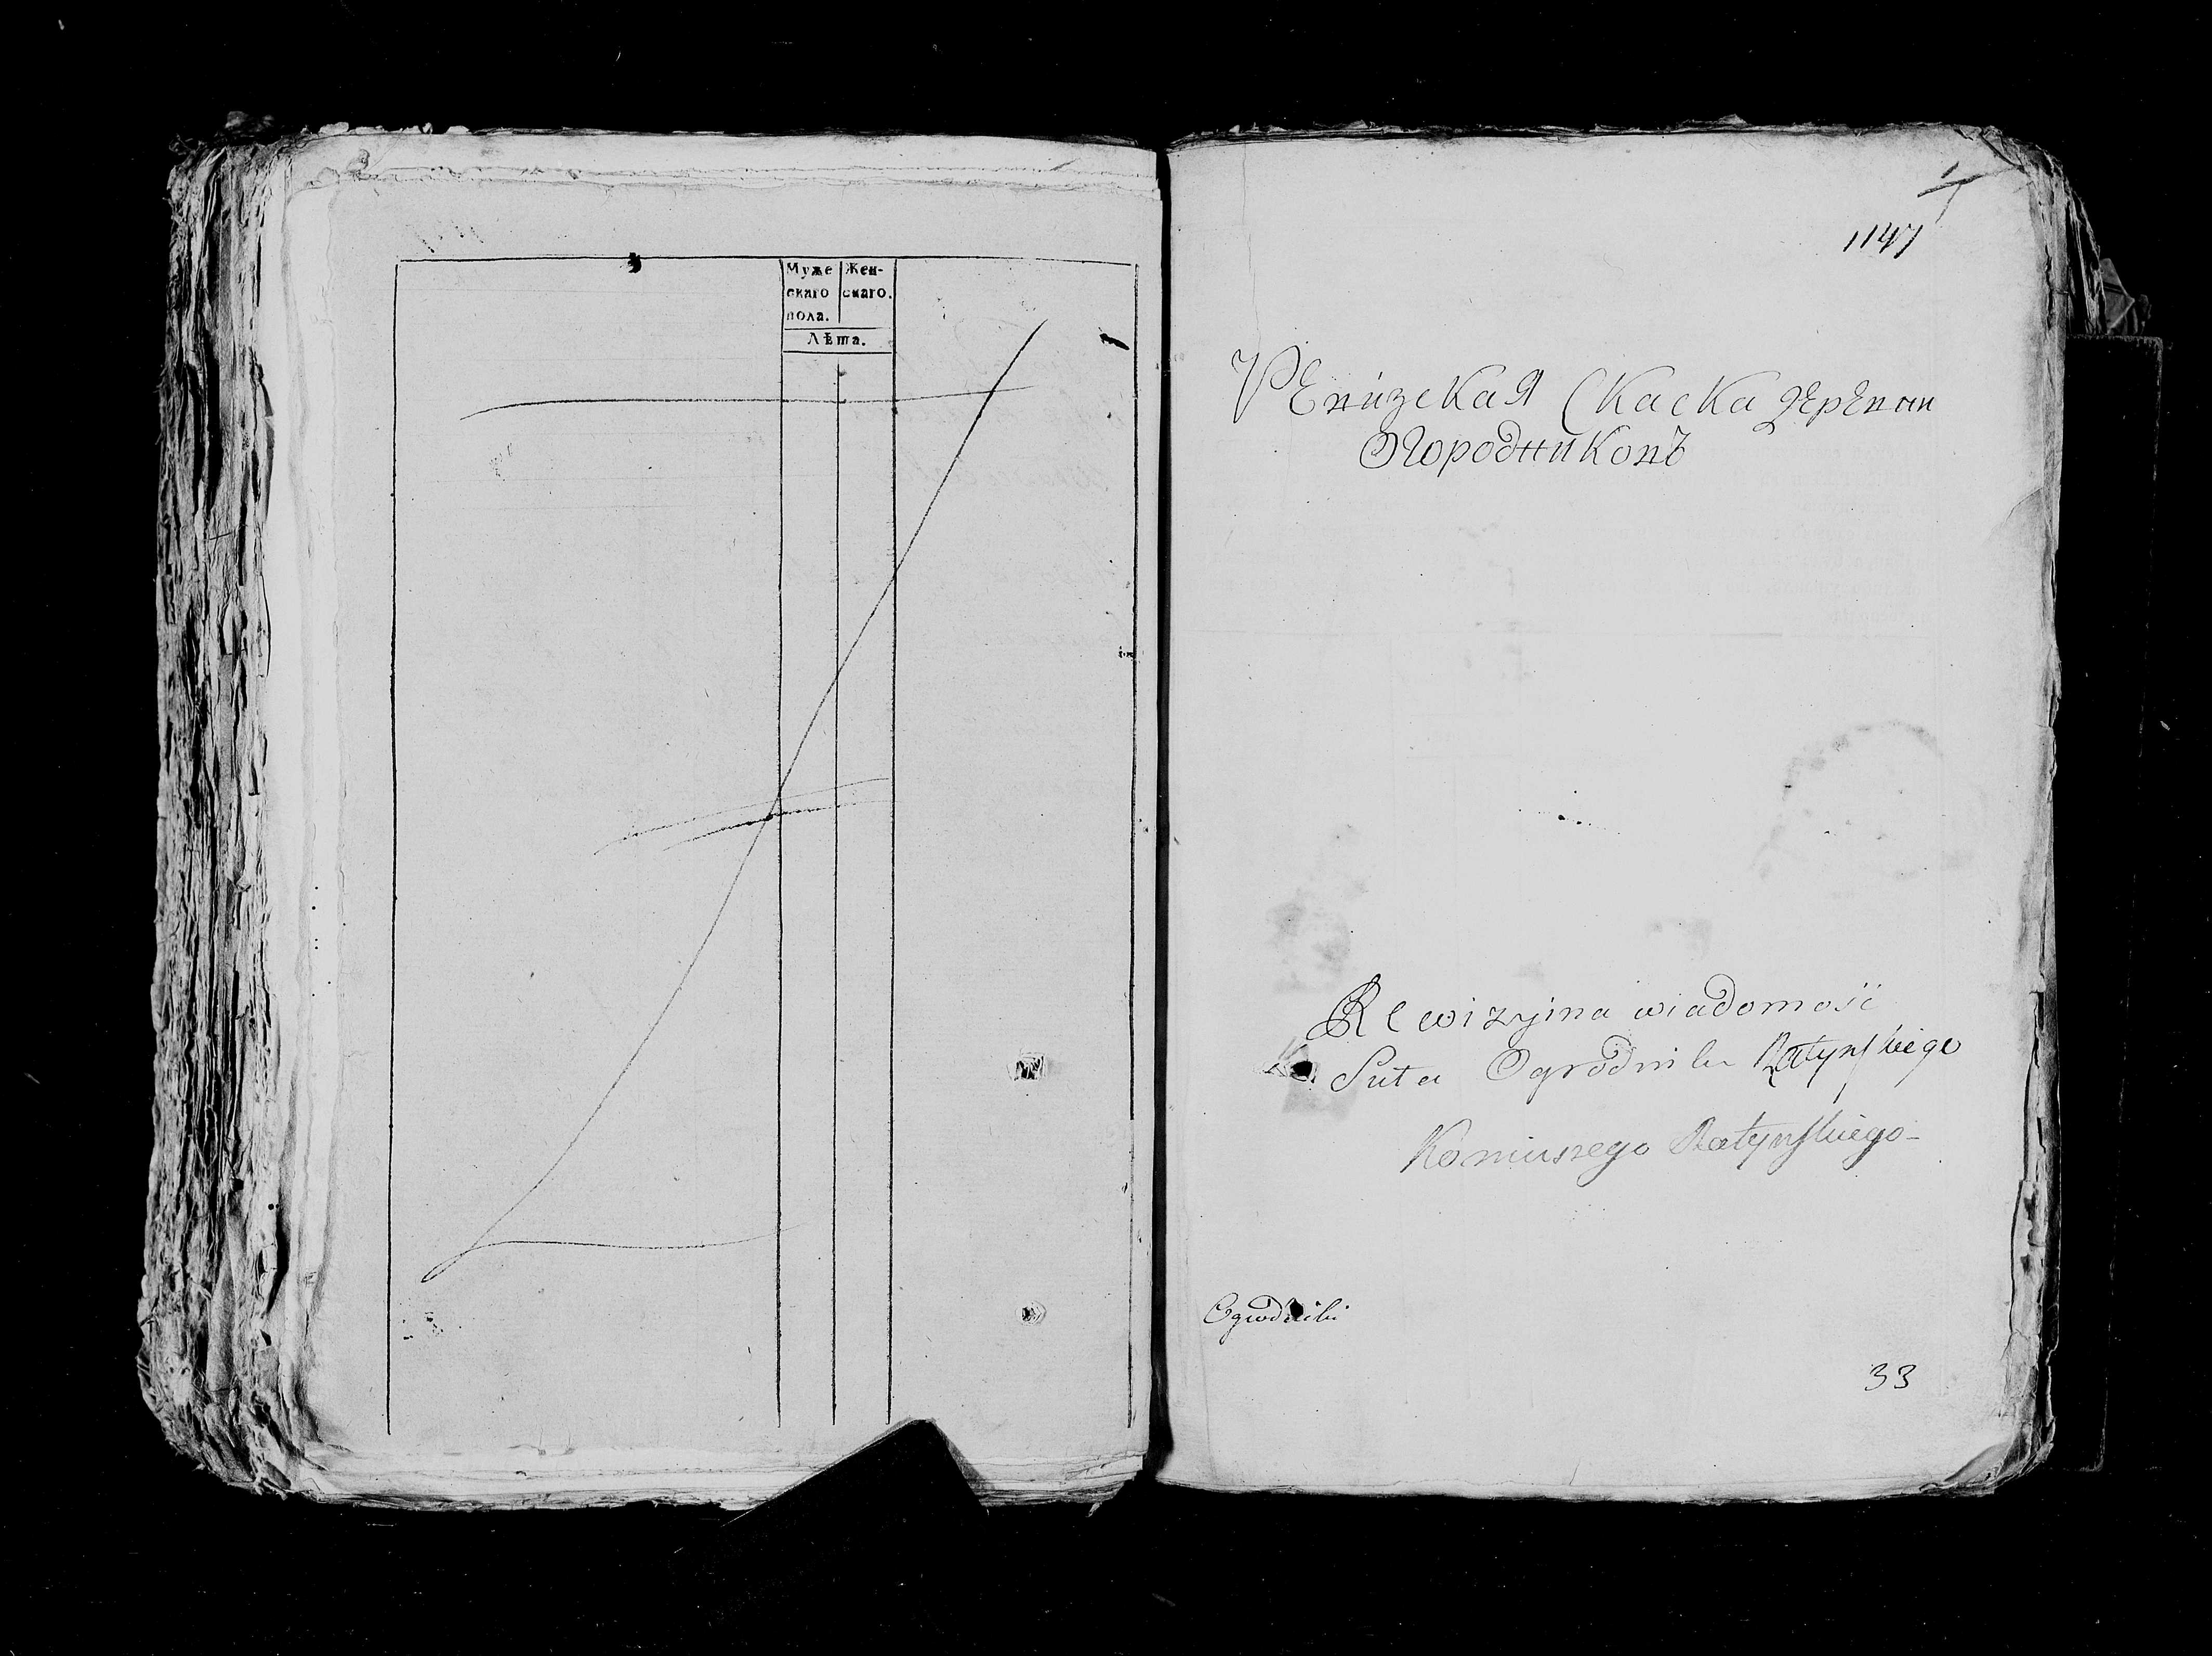 Муже
скаго
пола.
Жен-
скаго.
Лѣта.
1147
Ревизская Скаска деревни
Огородниковъ
Rewizyina wiadomość
Ogrodnik Ratynskiego
Koniuszego Ratynskiego-
Ogrodniki
33